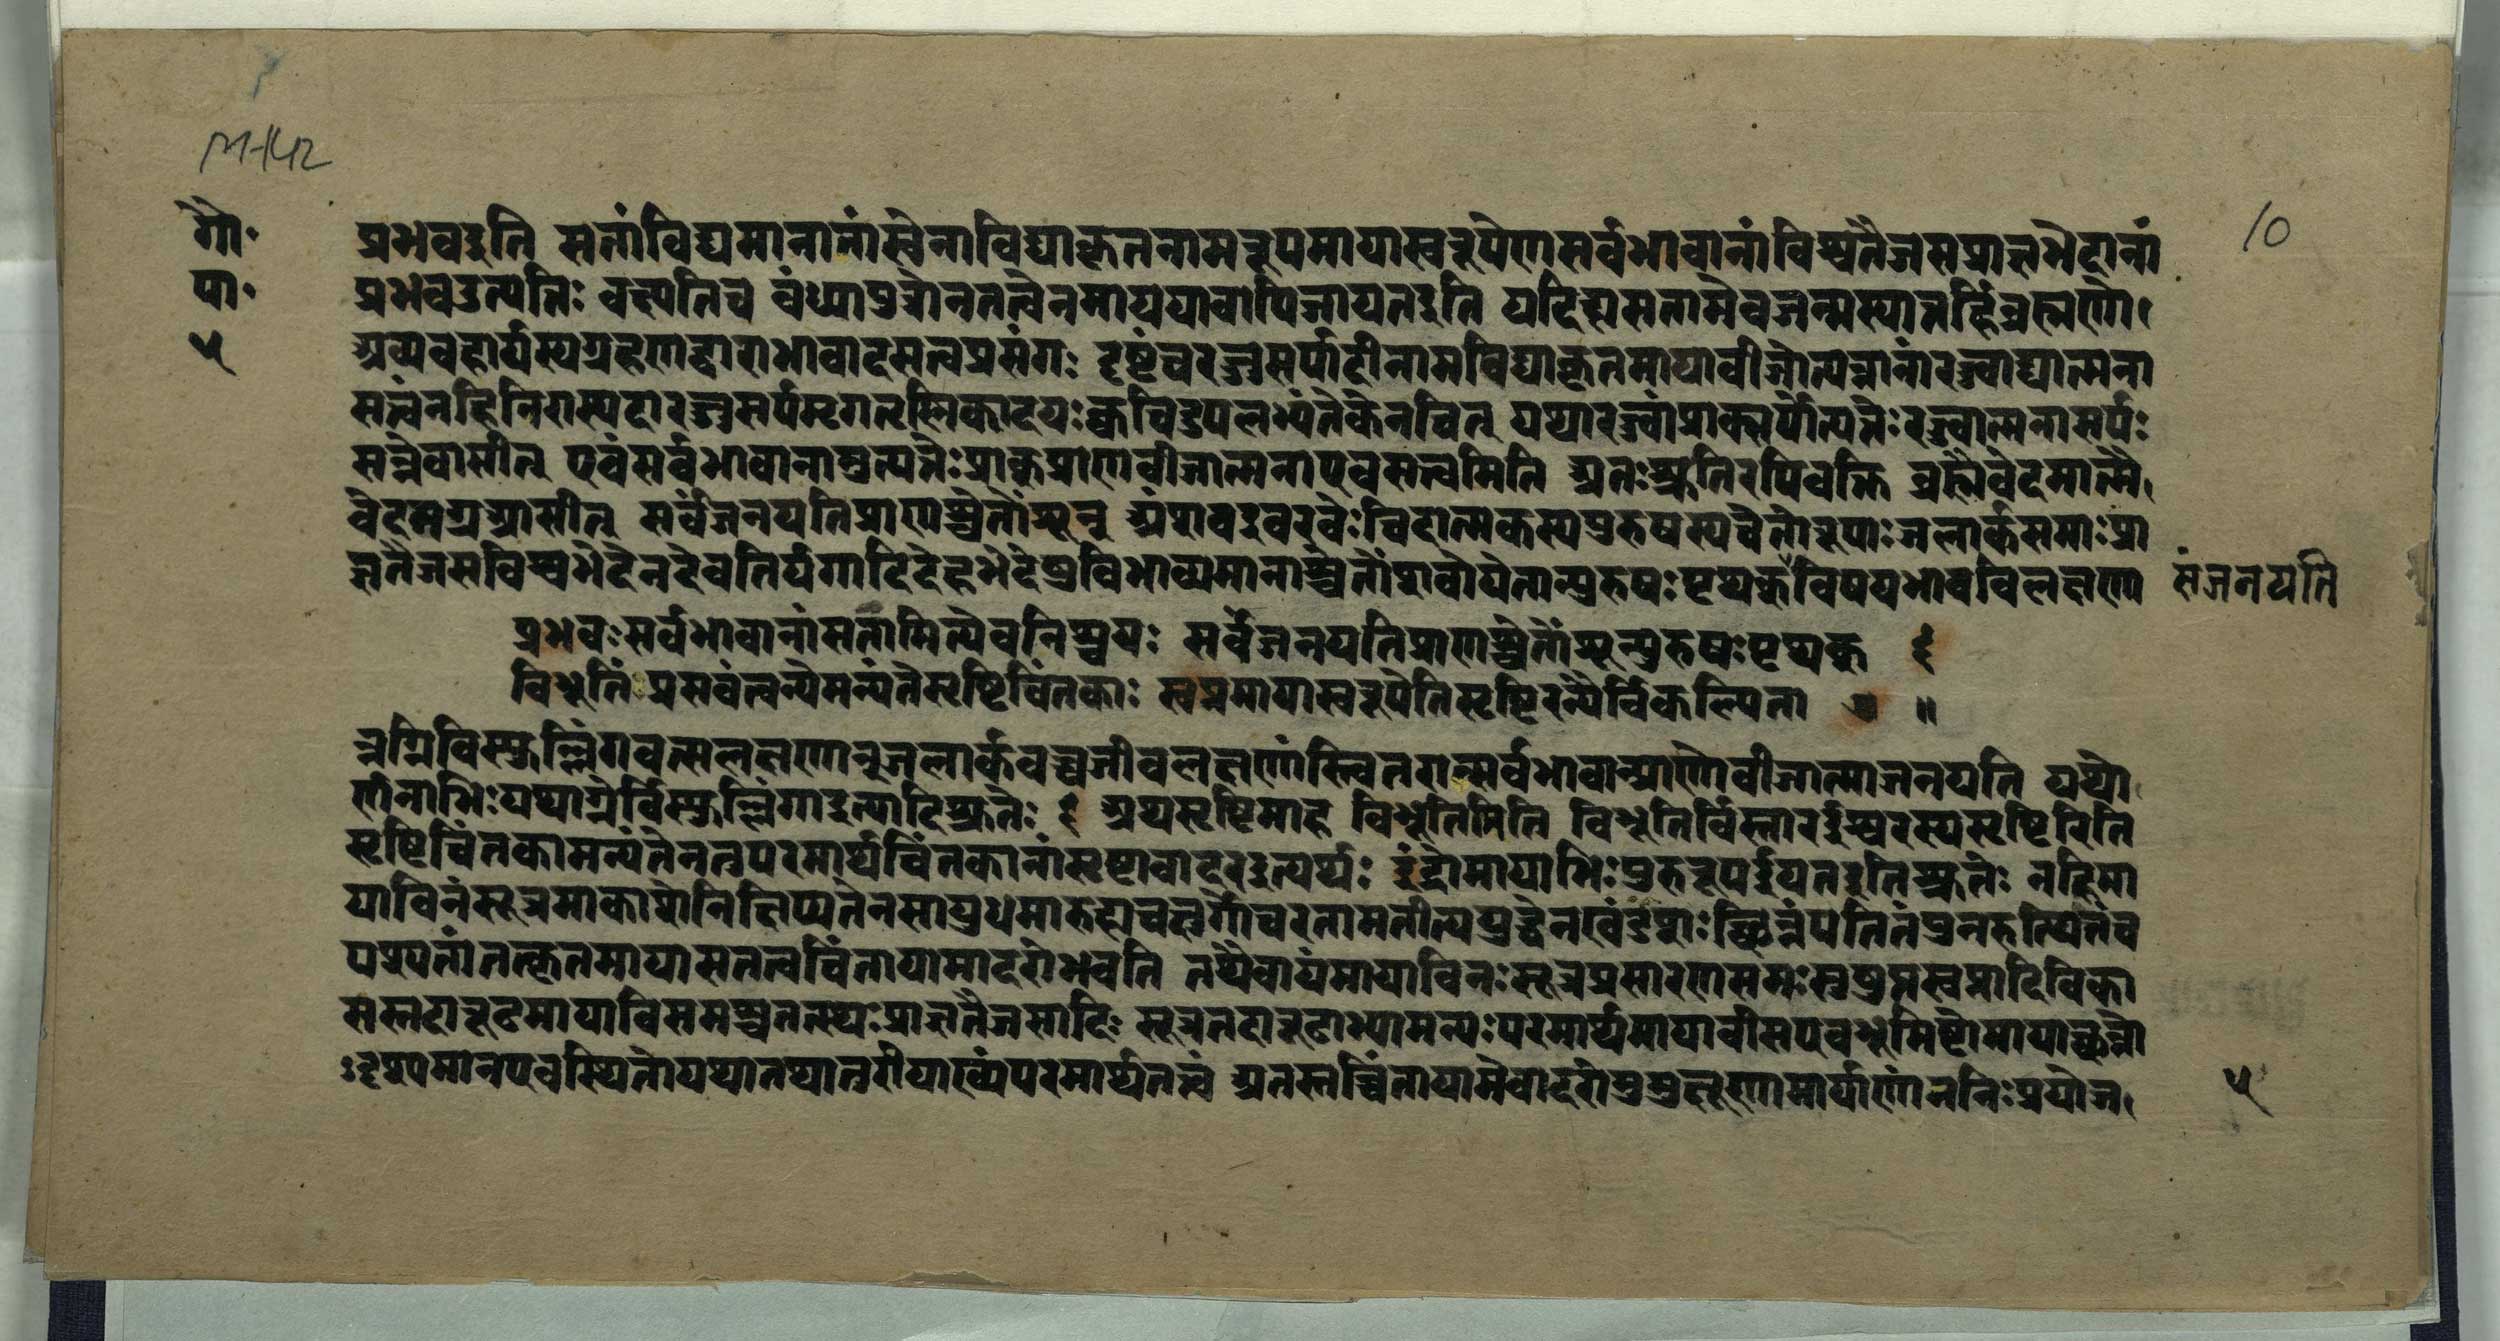 M-142
10
गौ॰
पा॰
५
प्रभवइति सतांविद्यमानानांस्वेनाविद्याकृतनामरूपमायास्वरूपेणसर्वभावानांविश्वतैजसप्राज्ञभेदानां
प्रभवउत्पत्तिः वक्ष्यतिच वंध्यापुत्रोनतत्वेनमाययावापिजायतइति यदिह्यसतामेवजन्मस्यात्तर्हिब्रह्मणो
अव्यवहार्यस्यग्रहणद्वाराभावादसत्वप्रसंगः दृष्टंचरज्जुसर्पादीनामविद्याकृतमायाबीजोत्पन्नानांरज्ज्वाद्यात्मना
सत्वंनहिनिरास्पदारज्जुसर्पमृगतृस्निकादयःक्वचिदुपलभ्यंतेकेनचित् यथारज्ज्वांप्राक्सर्पोत्पत्तेःरज्ज्वात्मनासर्पः
सन्नेवासीत् एवंसर्वभावानामुत्पत्तेःप्राक्प्राणबीजात्मनाएवसत्वमिति अतःश्रुतिरपिवक्ति ब्रह्मैवेदमात्मै
वेदमग्रआसीत् सर्वंजनयतिप्राणश्चेतोंशून् अंशवइवरवेःचिदात्मकस्यपुरुषस्यचेतोरूपाःजलार्कसमाःप्रा
ज्ञतैजसविश्वभेदेनदेवतिर्यगादिदेहभेदेषुविभाव्यमानाश्चेतोंशवोयेतान्पुरुषःपृथक्विषयभावविलक्षणा संजनयति
प्रभवःसर्वभावानांसतामित्येवनिश्चयः सर्वंजनयतिप्राणश्चेतोंशून्पुरुषःपृथक् ६
विभूतिं प्रसवंत्वन्येमन्यंतेसृष्टिचिंतकाः स्वप्नमायास्वरूपेतिसृष्टिरन्यैर्विकल्पिता ७ ॥
न्नग्निविस्फुल्लिंगवत्सलक्षणान्जलार्कवच्चजीवलक्षणांस्त्वितरान्सर्वभावान्प्राणोबीजात्माजनयति यथो
र्णनाभिःयथाग्नेर्विस्फुल्लिंगाइत्यादिश्रुतेः ६ अथसृष्टिमाह विभूतिमिति विभूतिर्विस्तारईश्वरस्यसृष्टिरिति
सृष्टिचिंतकामन्यंतेनतुपरमार्थचिंतकानांसृष्टावादरइत्यर्थः इंद्रोमायाभिःपुरुरूपईयतइतिश्रुतेः नहिमा
याविनंसूत्रमाकाशेनिक्षिप्यतेनसायुधमारुह्यचक्षुर्गोचरतामतीत्ययुद्धेनखंडशःच्छिन्नंपतितंपुनरुत्थितंच
पश्यतांतत्कृतमायासतत्वचिंतायामादरोभवति तथैवायंमायाविनःसूत्रप्रसारणसमःसुषुप्तस्वप्नादिविका
सस्तदारूढमायाविसमश्चतत्स्थःप्राज्ञतैजसादिः सूत्रतदारूढाभ्यामन्यःपरमार्थमायावीसएवभूमिष्ठोमायाच्छन्नो
ऽदृश्यमानएवस्थितोयथातथातुरीयाख्यंपरमार्थतत्वं अतस्तच्चिंतायामेवादरोमुमुक्षूणामार्याणांननिःप्रयोज
५